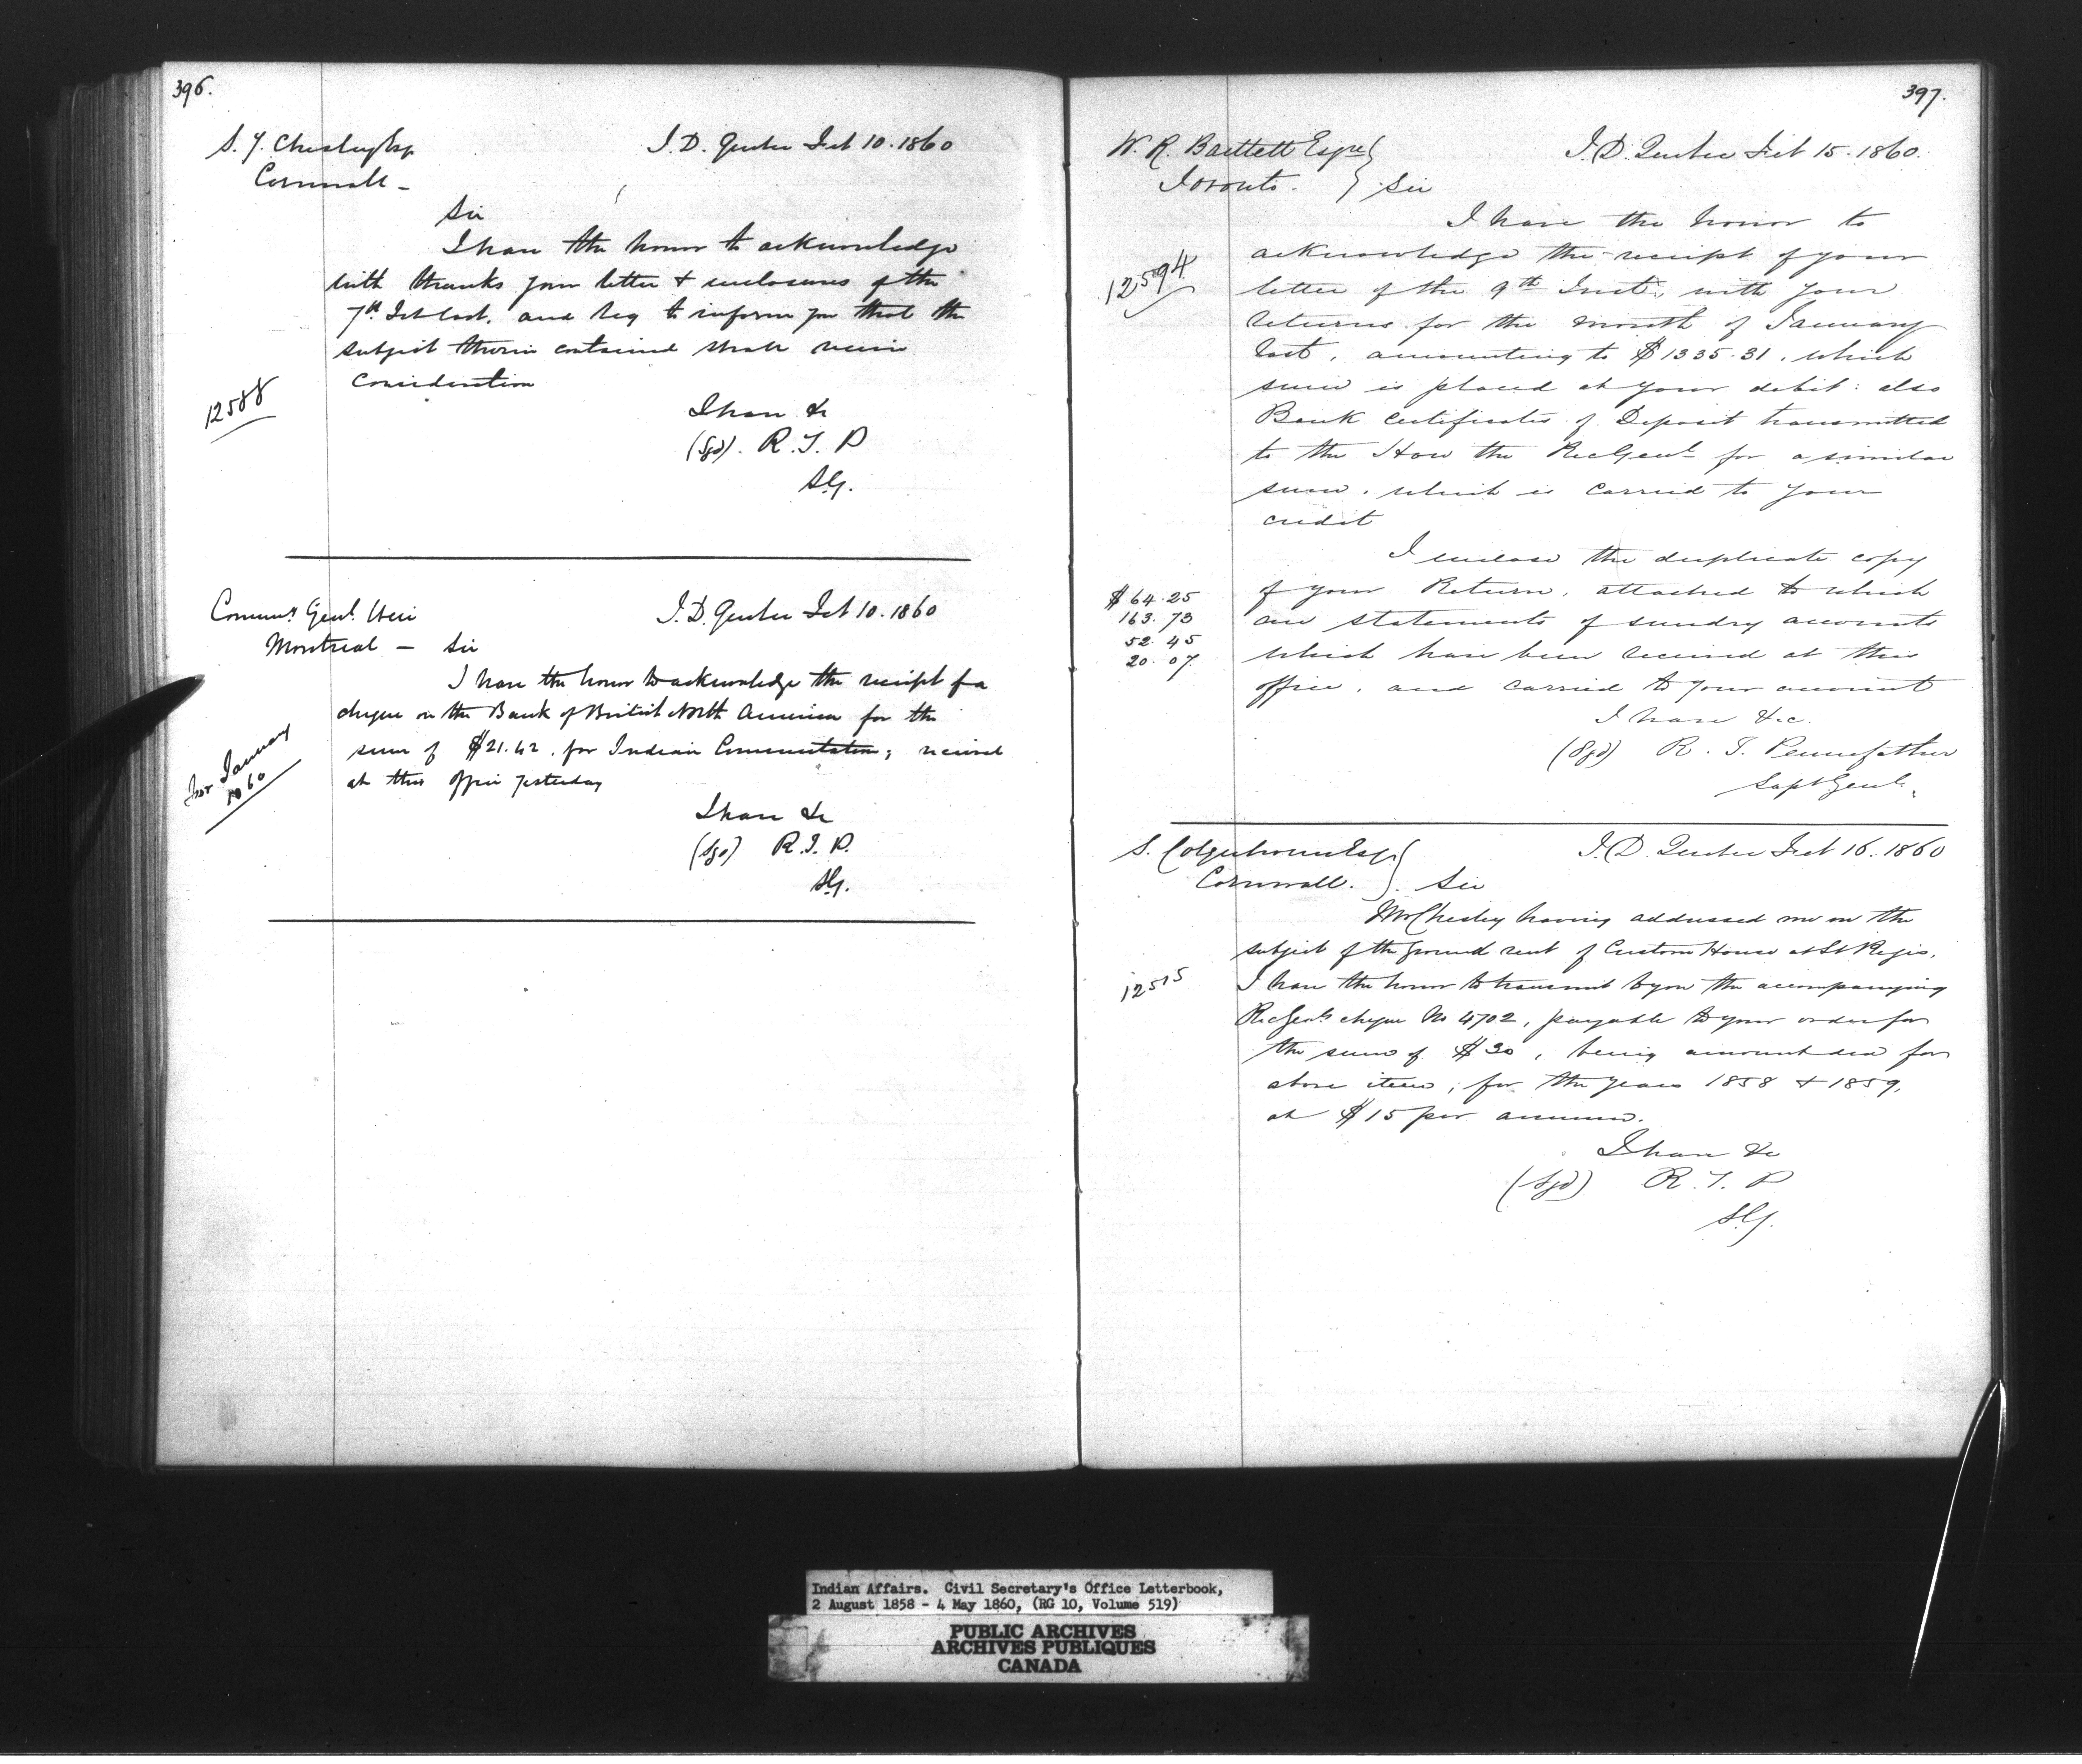 396.
S. Y. Chesley Esq
Cornwall -
I. D. Quebec Feb 10. 1860
Sir
I have the honor to acknowledge
with thanks your letter & enclosures of the
7th Feb last, and beg to inform you that the
subject therein contained shall receive
consideration
12588
I have &c
(Sgd). R. T. P
S.G.
Commy Genl. Weir
Montreal - Sir
I. D. Quebec Feb 10. 1860
I have the honor to acknowledge the receipt of a
cheque on the Bank of British North America for the
sum of $21.42. for Indian Commutation; received
at this office yesterday
for January
1860
I have &c
(Sgd) R. T. P.
S.G.
397.
W. R. Bartlett Esqre
Toronto. Sir
I. D. Quebec Feb 15. 1860.
I have the honor to
acknowledge the receipt of your
12594
letter of the 9th Inst, with your
returns for the month of January
last, amounting to $1335.31. which
sum is placed at your debit: also
Bank Certificates of Deposit transmitted
to the Hon the RecGenl for a similar
sum. which is carried to your
credit
I enclose the duplicate copy
of your Return, attached to which
are statements of sundry accounts
which have been received at this
office, and carried to your account
$64.25
163.73
52.45
20.07
I have &c.
(Sgd) R. T. Pennefather
SuptGenl.
S. Colquhoun Esqr
Cornwall. Sir
I. D. Quebec Feb 16. 1860
Mr Chesley having addressed me on the
subject of the Ground rent of Custom House at St Regis,
12515
I have the honor to transmit to you the accompanying
RecGenls cheque No 4702, payable to your order for
the sum of $30, being amount due for
above item, for the years 1858 & 1859,
at $15 per annum.
I have &c
(Sgd) R. T. P
S.G.
Indian Affairs. Civil Secretary's Office Letterbook,
2 August 1858 - 4 May 1860, (RG 10, Volume 519)
PUBLIC ARCHIVES
ARCHIVES PUBLIQUES
CANADA